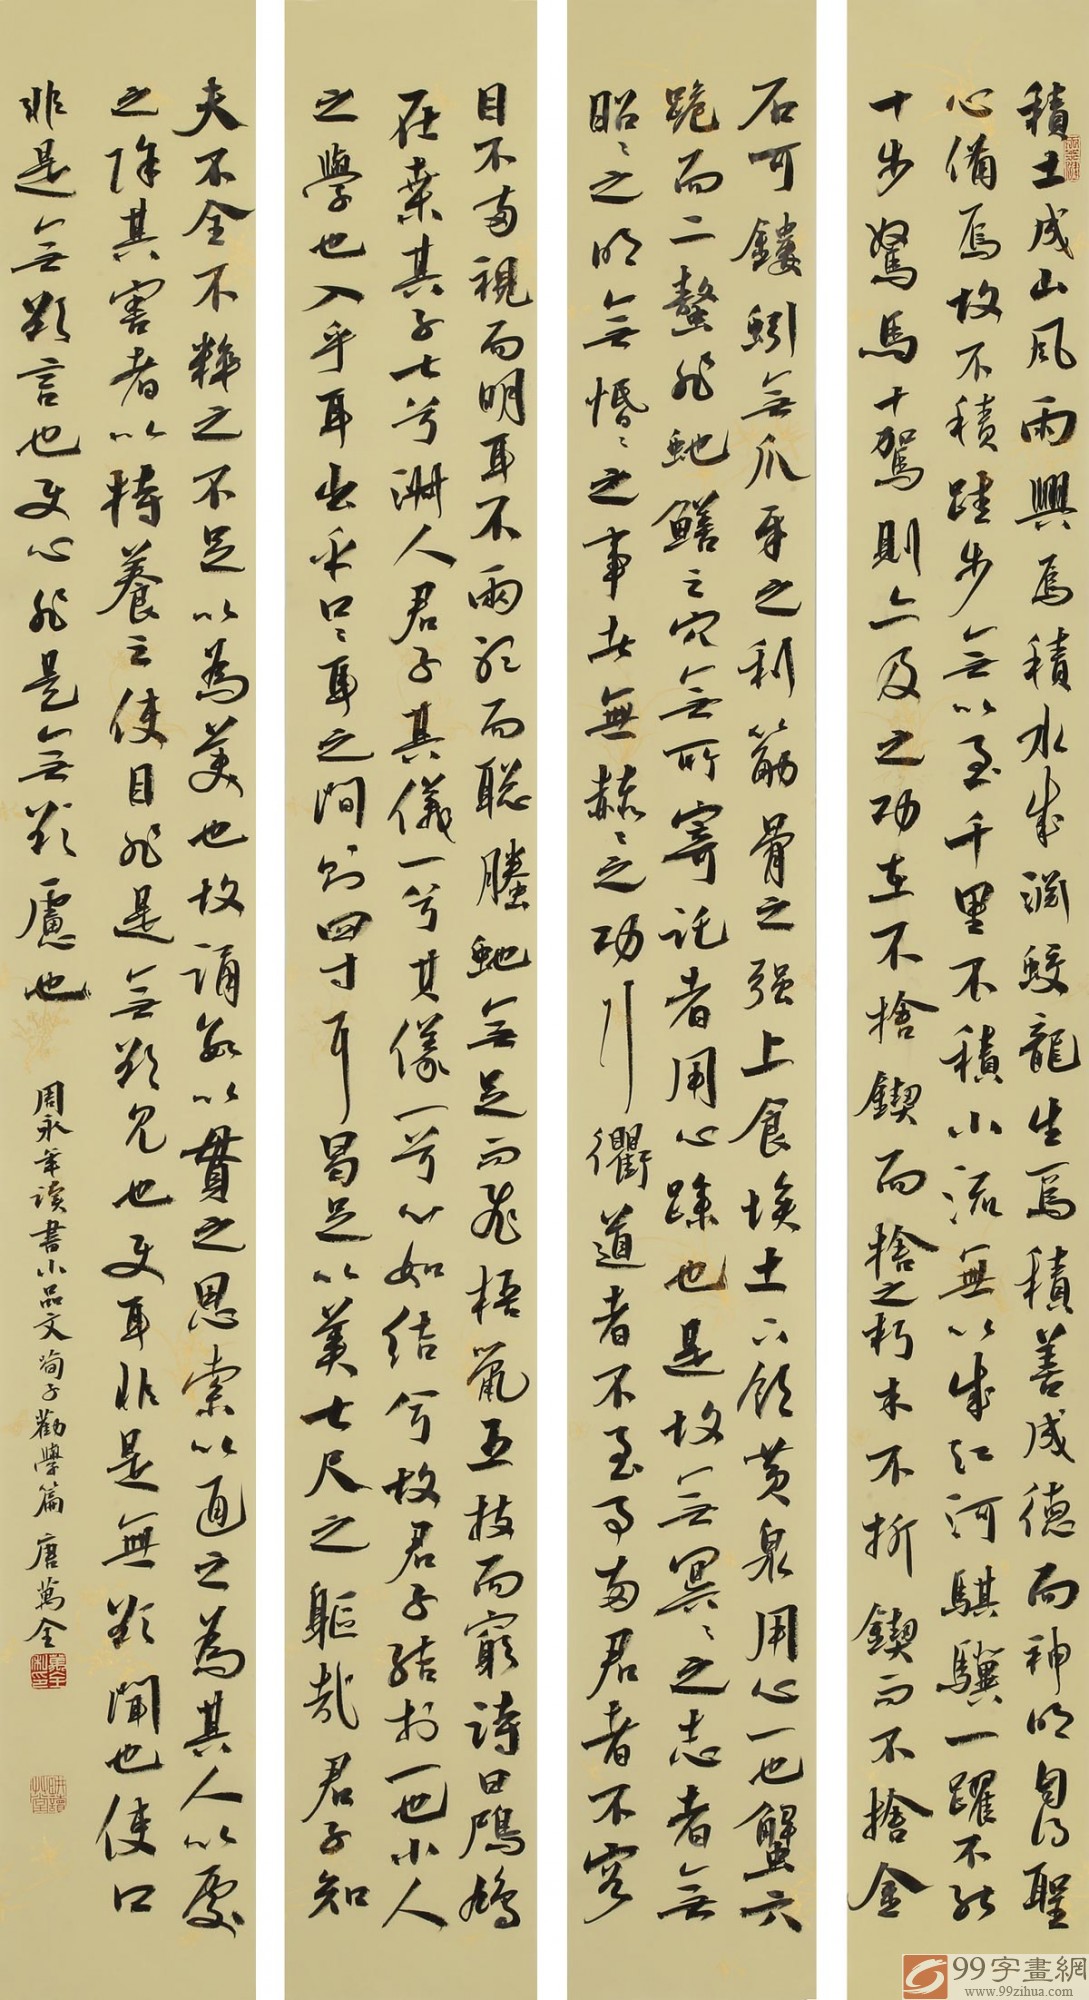 積土成山風雨興焉積水成淵蛟龍生焉積善成德而神明自得聖
心備焉故不積跬步無以至千里不積小流無以成江河騏驥一躍不能
十步駑馬十駕則亦及之功在不捨鍥而捨之朽木不折鍥而不捨金
石可鏤蚓無爪牙之利筋骨之强上食埃土下飲黄泉用心一也蟹六
跪而二螯非虵鱔之穴無所寄託者用心躁也是故無冥〻之志者無
昭〻之明無惛〻之事者無赫〻之功行衢道者不至事兩君者不容
目不兩視而明耳不兩聽而聡螣虵無足而飛梧鼠五技而窮詩曰鳲鳩
在桒其子七兮淑人君子其儀一兮其儀一兮心如結兮故君子結於一也小人
之學也入乎耳出乎口〻耳之間則四寸耳曷足以美七尺之軀哉君子知
夫不全不粹之不足以為美也故誦數以貫之思索以通之為其人以處
之除其害者以持養之使目非是無欲見也使耳非是無欲聞也使口
非是無欲言也使心非是無欲慮也
周永年读書小品文荀子勸學篇 唐萬全
99字畫網
www.99zihua.com